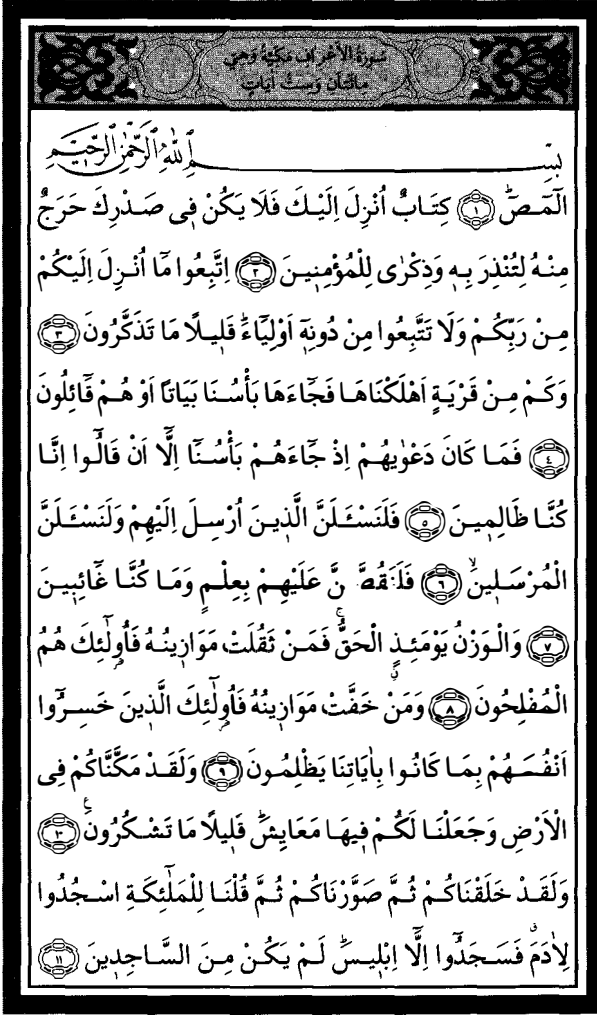 سُورَةُ الْاَعْرَافِ مَكِّيَّةٌ وَهِيَ
مِائَتَانِ وَسِتُّ اٰيَاتٍ
بِسْمِ اللّٰهِ الرَّحْمٰنِ الرَّحٖيمِ
الٓمٓصٓ ﴿١﴾ كِتَابٌ اُنْزِلَ اِلَيْكَ فَلَا يَكُنْ فٖى صَدْرِكَ حَرَجٌ
مِنْهُ لِتُنْذِرَ بِهٖ وَذِكْرٰى لِلْمُؤْمِنٖينَ ﴿٢﴾ اِتَّبِعُوا مَٓا اُنْزِلَ اِلَيْكُمْ
مِنْ رَبِّكُمْ وَلَا تَتَّبِعُوا مِنْ دُونِهٖٓ اَوْلِيَٓاءَۜ قَلٖيلًا مَا تَذَكَّرُونَ ﴿٣﴾
وَكَمْ مِنْ قَرْيَةٍ اَهْلَكْنَاهَا فَجَٓاءَهَا بَأْسُنَا بَيَاتًا اَوْ هُمْ قَٓائِلُونَ
﴿٤﴾ فَمَا كَانَ دَعْوٰيهُمْ اِذْ جَٓاءَهُمْ بَأْسُنَٓا اِلَّٓا اَنْ قَالُٓوا اِنَّا
كُنَّا ظَالِمٖينَ ﴿٥﴾ فَلَنَسْـَٔلَنَّ الَّذٖينَ اُرْسِلَ اِلَيْهِمْ وَلَنَسْـَٔلَنَّ
الْمُرْسَلٖينَۙ ﴿٦﴾ فَلَنَقُصَّنَّ عَلَيْهِمْ بِعِلْمٍ وَمَا كُنَّا غَٓائِبٖينَ
﴿٧﴾ وَالْوَزْنُ يَوْمَئِذٍۨ الْحَقُّۚ فَمَنْ ثَقُلَتْ مَوَازٖينُهُ فَاُو۬لٰٓئِكَ هُمُ
الْمُفْلِحُونَ ﴿٨﴾ وَمَنْ خَفَّتْ مَوَازٖينُهُ فَاُو۬لٰٓئِكَ الَّذٖينَ خَسِرُٓوا
اَنْفُسَهُمْ بِمَا كَانُوا بِاٰيَاتِنَا يَظْلِمُونَ ﴿٩﴾ وَلَقَدْ مَكَّنَّاكُمْ فِى
الْاَرْضِ وَجَعَلْنَا لَكُمْ فٖيهَا مَعَايِشَۜ قَلٖيلًا مَا تَشْكُرُونَ۟ ﴿١٠﴾
وَلَقَدْ خَلَقْنَاكُمْ ثُمَّ صَوَّرْنَاكُمْ ثُمَّ قُلْنَا لِلْمَلٰٓئِكَةِ اسْجُدُوا
لِاٰدَمَۗ فَسَجَدُٓوا اِلَّٓا اِبْلٖيسَۜ لَمْ يَكُنْ مِنَ السَّاجِدٖينَ ﴿١١﴾